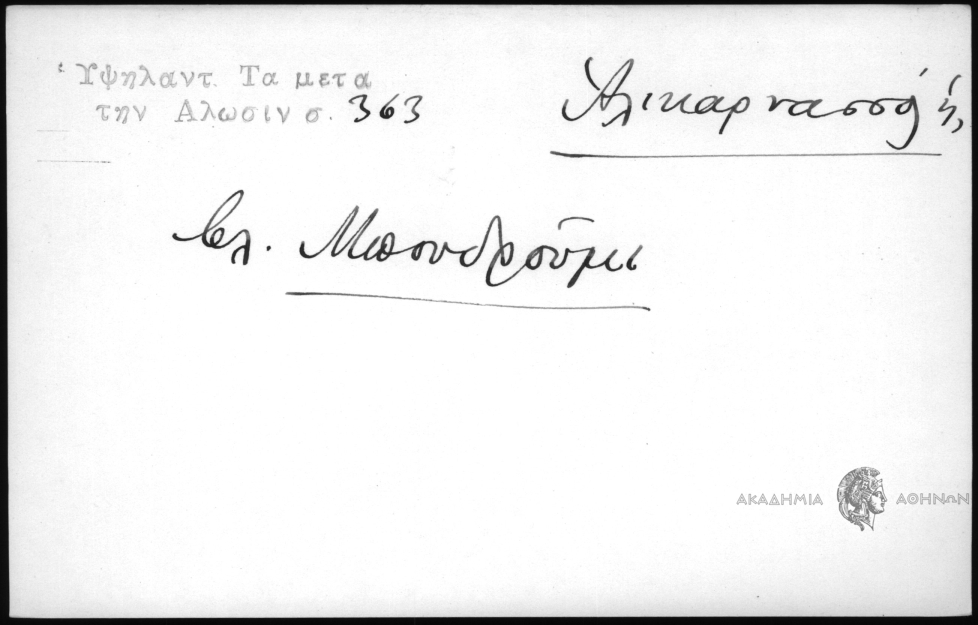 Ὑψηλαντ. Τα μετα
την Αλωσιν σ. 363
Ἁλικαρνασσό ἡ,
βλ. Μπουδρούμι
ΑΚΑΔΗΜΙΑ ΑΘΗΝΩΝ